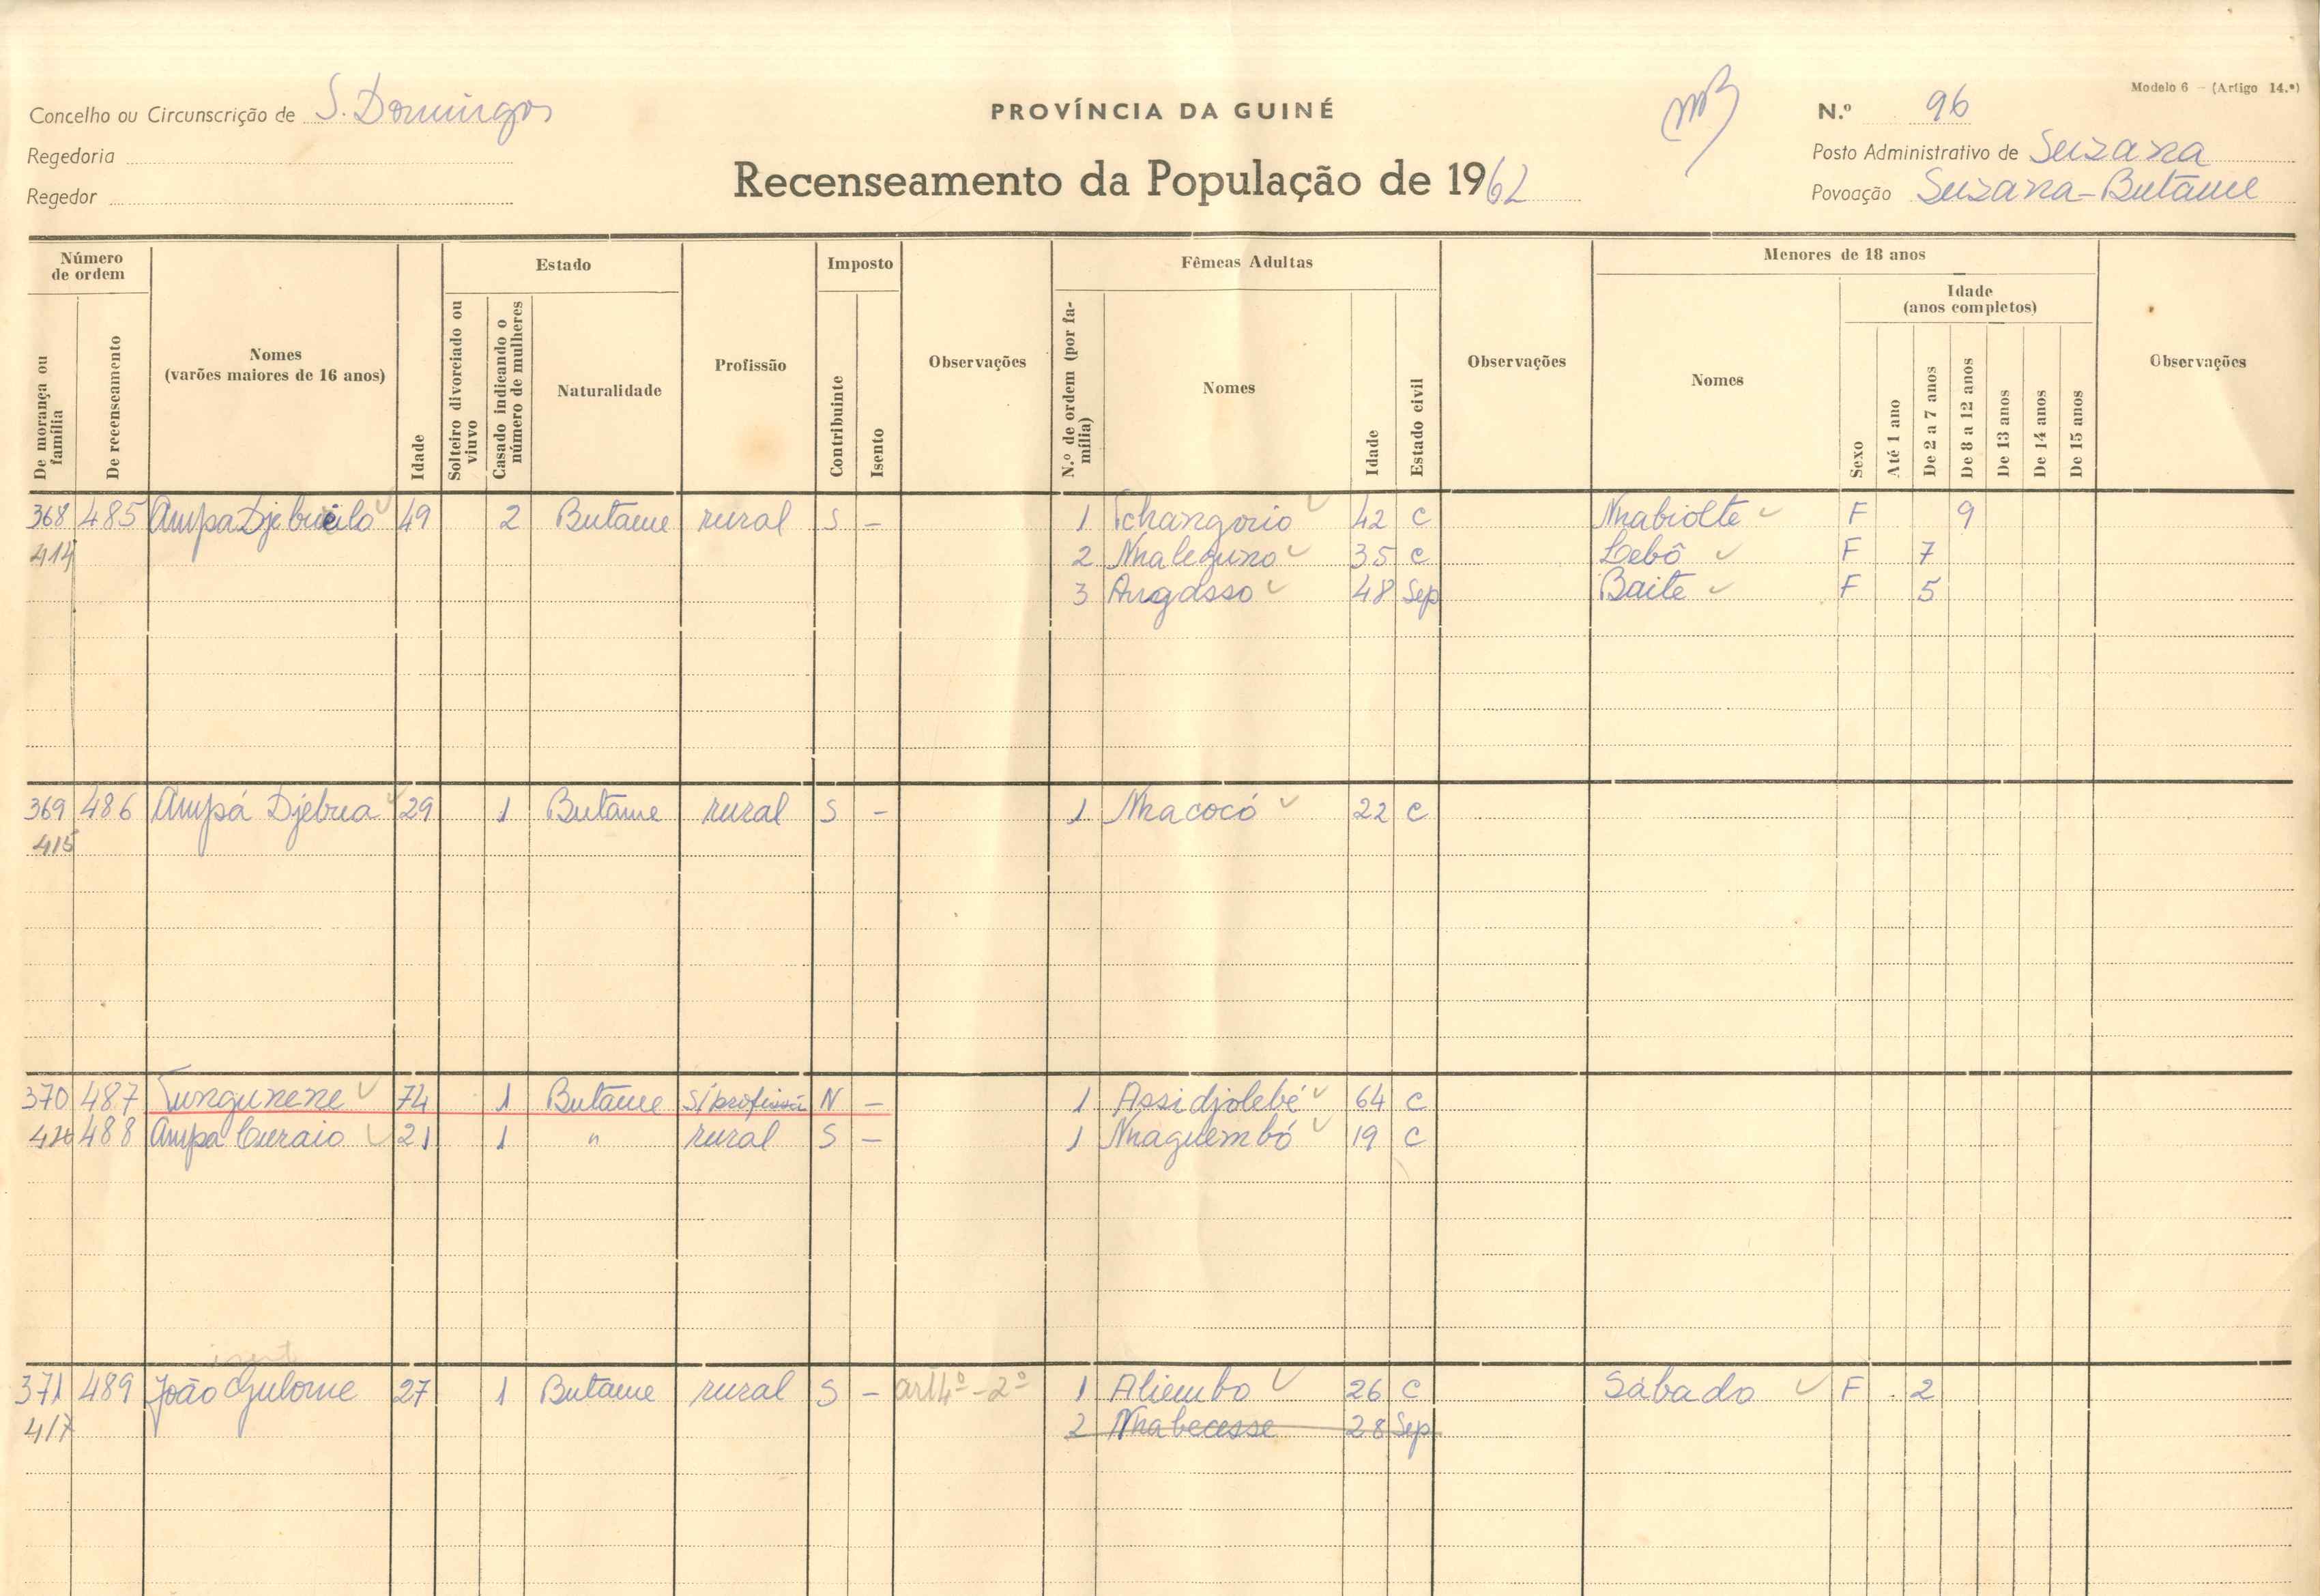 Modelo 6 - (Artigo 14.º)
Concelho ou Circunscrição de S. Domingos
PROVÍNCIA DA GUINÉ
N.º 96
Regedoria
Recenseamento da População de 1962
Posto Administrativo de Suzana
Regedor
Povoação Suzana-Butame
Número de ordem
De morança ou família
De recenseamento
Nomes
(varões maiores de 16 anos)
Idade
Estado
Solteiro divorciado ou viuvo
Casado indicando o número de mulheres
Naturalidade
Profissão
Imposto
Contribuinte
Isento
Observações
Fêmeas Adultas
N.º de ordem (por família)
Nomes
Idade
Estado civil
Observações
Menores de 18 anos
Nomes
Sexo
Idade
(anos completos)
Até 1 ano
De 2 a 7 anos
De 8 a 12 anos
De 13 anos
De 14 anos
De 15 anos
Observações
368 485 49 2 Butame rural S - 1 Tchangorio 42 C Nhabiolte F 9
414 2 Nhaleguno 35 C Lebô F 7
3 Angasso 48 Sep Baite F 5
369 486 Ampá Djebua 29 1 Butame rural S - 1 Nhacocó 22 C
415
370 487 Sungunene 74 1 Butame S/profissã N - 1 Assidjolebé 64 C
488 Ampa Curaio 21 1 " rural S - 1 Nhaguembó 19 C
371 489 João Gulome 27 1 Butame rural S - art 4º - 2º 1 Aliembo 26 C Sábado F 2
417 2 Nhabecesse 28 Sep